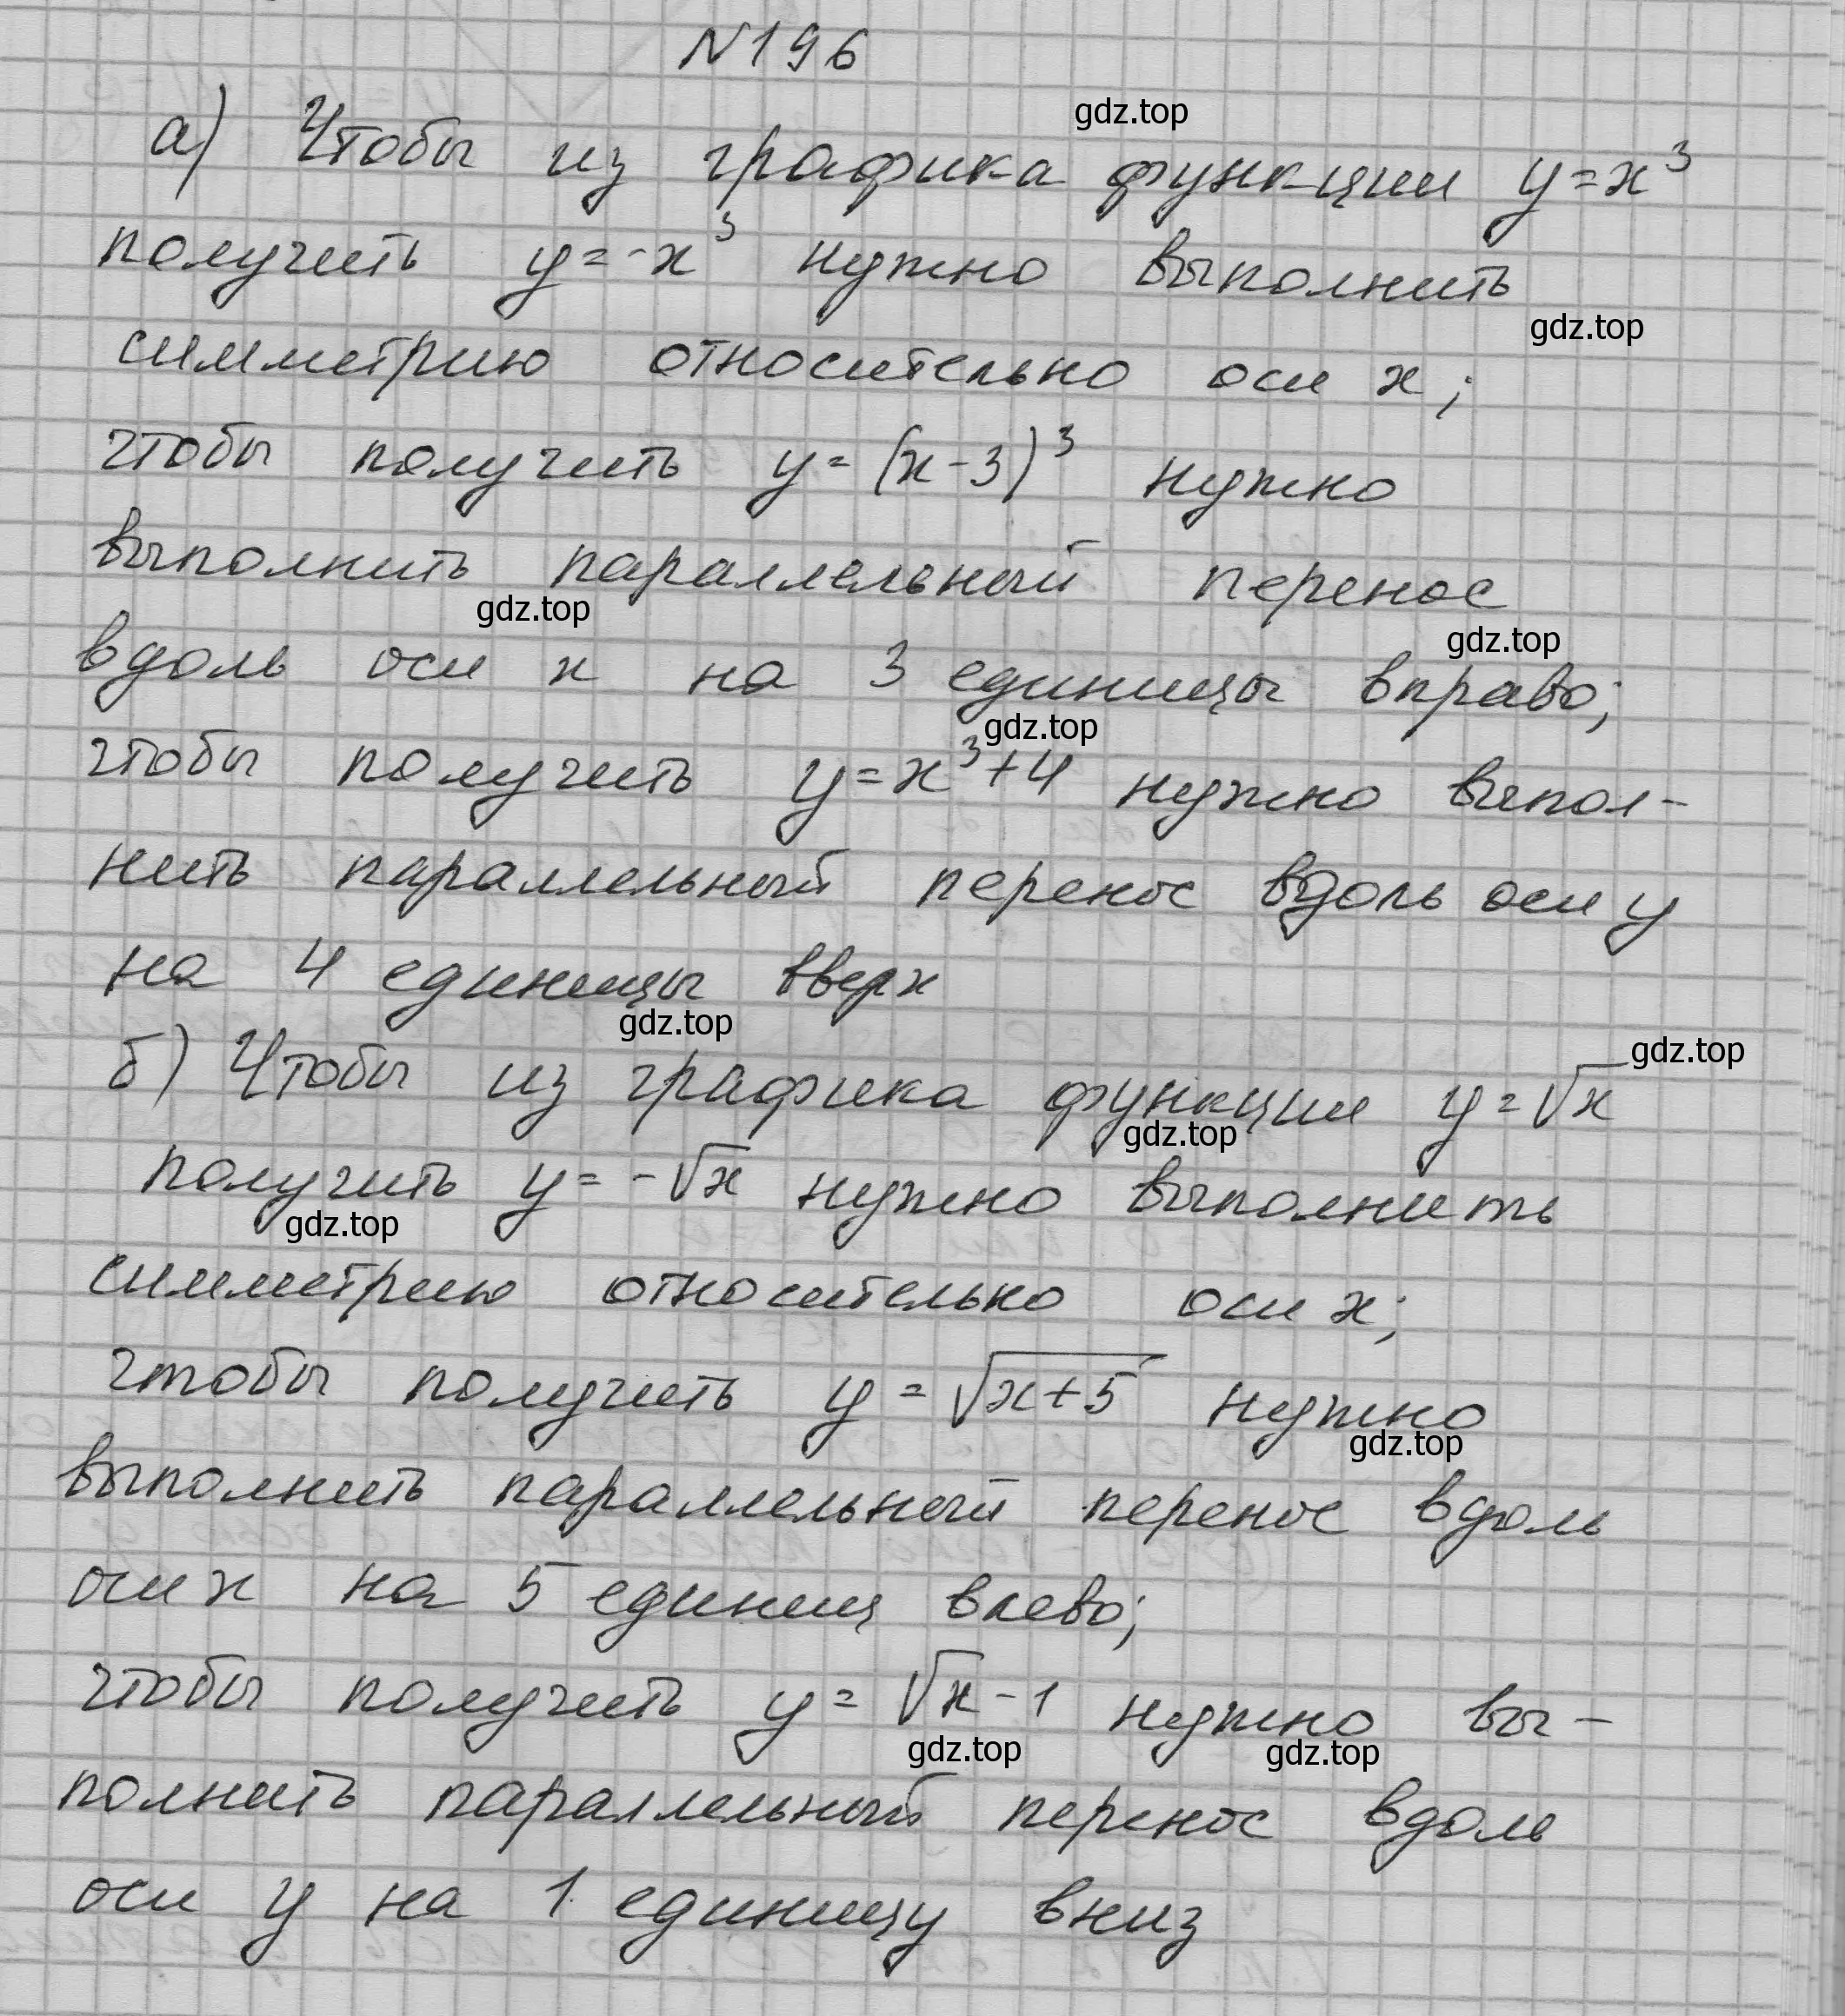 №196
gdz.top
а) Чтобы из графика функции y=x³
получить y=-x³ нужно выполнить
gdz.top
симметрию относительно оси x;
чтобы получить y=(x-3)³ нужно
выполнить параллельный перенос
gdz.top
gdz.top
вдоль оси x на 3 единицы вправо;
gdz.top
чтобы получить y=x³+4 нужно выпол-
нить параллельный перенос вдоль оси y
на 4 единицы вверх
gdz.top
gdz.top
б) Чтобы из графика функции y=√x
gdz.top
получить y=-√x нужно выполнить
gdz.top
симметрию относительно оси x;
чтобы получить y=√(x+5) нужно
gdz.top
выполнить параллельный перенос вдоль
оси x на 5 единиц влево;
чтобы получить y=√x-1 нужно вы-
gdz.top gdz.top
полнить параллельный перенос вдоль
оси y на 1 единицу вниз